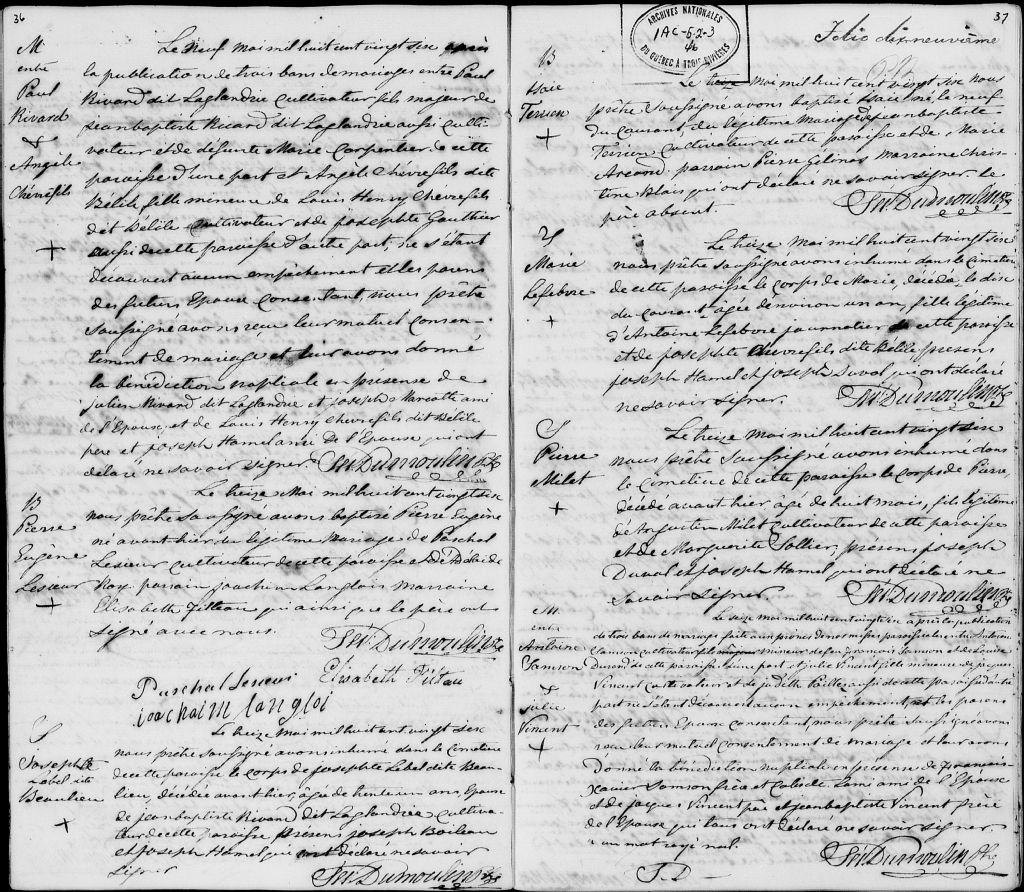 36
M
entre
Paul
Rivard
&
Angèle
Chèvrefils
+
Le Neuf mai mil huit cent vingt six après
la publication de trois bans de mariages entre Paul
Rivard dit Laglandrie cultivateur fils majeur de
jean baptiste Ricard dit Laglandrie aussi culti-
vateur et de défunte Marie Carpentier de cette
paroisse d'une part et Angèle Chèvrefils dite
Bélile fille mineure de Louis Henry Chèvrefils
dit Bélile cultivateur et de josephte Gauthier
aussi de cette paroisse d'autre part, ne s'étant
découvert aucun empêchement et les parens
des futurs Epoux consentant, nous prêtre
soussigné avons reçu leur mutuel consen-
tement de mariage et leur avons donné
la bénédiction nuptiale en présense de
julien Rivard dit Laglandrie et joseph Marcotte ami
de l'Epoux, et de Louis Henry chevrefils dit Bélile
pere et joseph Hamel ami de l'Epouse qui ont
déclaré ne savoir signer. Sn. Dumoulin Ptre
B
Pierre
Eugène
Lesieur
+
Le treize Mai mil huit cent vingt six
nous prêtre soussigné avons baptisé Pierre Eugène
né avant hier du legitime Mariage de Paschal
Lesieur cultivateur de cette paroisse et d'Adélaide
Roy. parain joachim Langlois marraine
Elisabeth Fiteau qui ainsi que le père ont
signé avec nous.
Sn. Dumoulin Ptre
Paschal Lesieur Elisabeth Fiteau
joachaim langloi
S
Josephte
Lebel dite
Beaulieu
+
Le treize mai mil huit cent vingt six
nous prêtre soussigné avons inhumé dans le cimetière
de cette paroisse le corps de josephte Lebel dite Beau-
lieu, décédée avant hier, âgée de trente un ans, Epouse
de jean baptiste Rivard dit Laglandrie cultiva-
teur de cette paroisse présens joseph Boileau
et joseph Hamel qui ont déclaré ne savoir
signer
Sn. Dumoulin Ptre
37
ARCHIVES NATIONALES
1AC-5.2-3
46
DU QUÉBEC À TROIS-RIVIÈRES
Folio dixneuvième
B
Isaie
Terrien
+
Le treize mai mil huit cent vingt six nous
prêtre soussigné avons baptisé Isaie né le neuf
du courant du legitime Mariage de jean baptiste
Terrien cultivateur de cette paroisse et de Marie
Arcand. parrain Pierre Gélinas marraine Chris-
tine Blais qui ont déclaré ne savoir signer. le
père absent.
Sn. Dumoulin Ptre
S
Marie
Lefebvre
+
Le treize mai mil huit cent vingt six
nous prêtre soussigné avons inhumé dans le cimetière
de cette paroisse le corps de Marie, décédée le dix
du courant, agée d'environ un an, fille legitime
d'Antoine Lefebvre journalier de cette paroisse
et de josephte Chevrefils dite Bélile présens
joseph Hamel et joseph Duval qui ont déclaré
ne savoir signer.
Sn. Dumoulin Ptre
S
Pierre
Milet
+
Le treize mai mil huit cent vingt six
nous prêtre soussigné avons inhumé dans
le cimetière de cette paroisse le corps de Pierre,
décédé avant hier, agé de huit mais, fils legitime
d'Augustin Milet cultivateur de cette paroisse
et de Marguerite Sollier, présens joseph
Duval et joseph Hamel qui ont déclaré ne
savoir signer
Sn. Dumoulin Ptre
M.
entre
Antoine
Samson
&
Julie
Vincent
+
Le seize mai mil huit cent vingt six après la publication
de trois bans de mariage faite aux prônes de nos messes paroissiales entre Antoine
Samson cultivateur fils mineur de feu François Samson et de Louise
Durand de cette paroisse d'une part et julie Vincent fille mineure de jacques
Vincent cultivateur et de judith Paillé aussi de cette paroisse d'autre
part ne s'étant découvert aucun empêchement, et les parens
des futurs Epoux consentant, nous prêtre soussigné avons
reçu leur mutuel consentement de mariage et leur avons
donné la bénédiction nuptiale en présense de François
Xavier Samson frère et Calixte Lami ami de l'Epoux
et de jacques Vincent père et jean baptiste Vincent frère
de l'Epouse qui tous ont déclaré ne savoir signer
un mot rayé nul.
Sn. Dumoulin Ptre
S. D